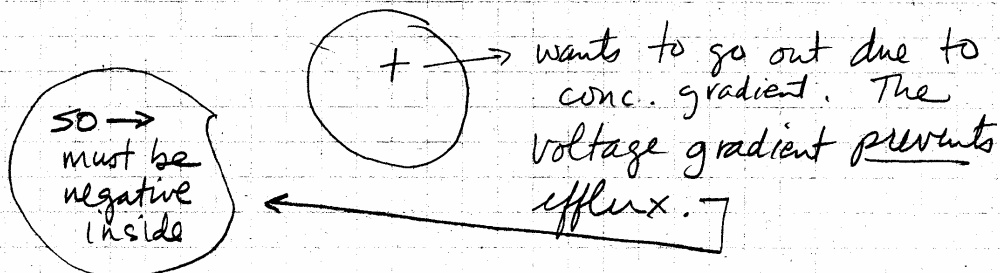 + → wants to go out due to
conc. gradient. The
voltage gradient prevents
efflux.
so →
must be
negative
inside